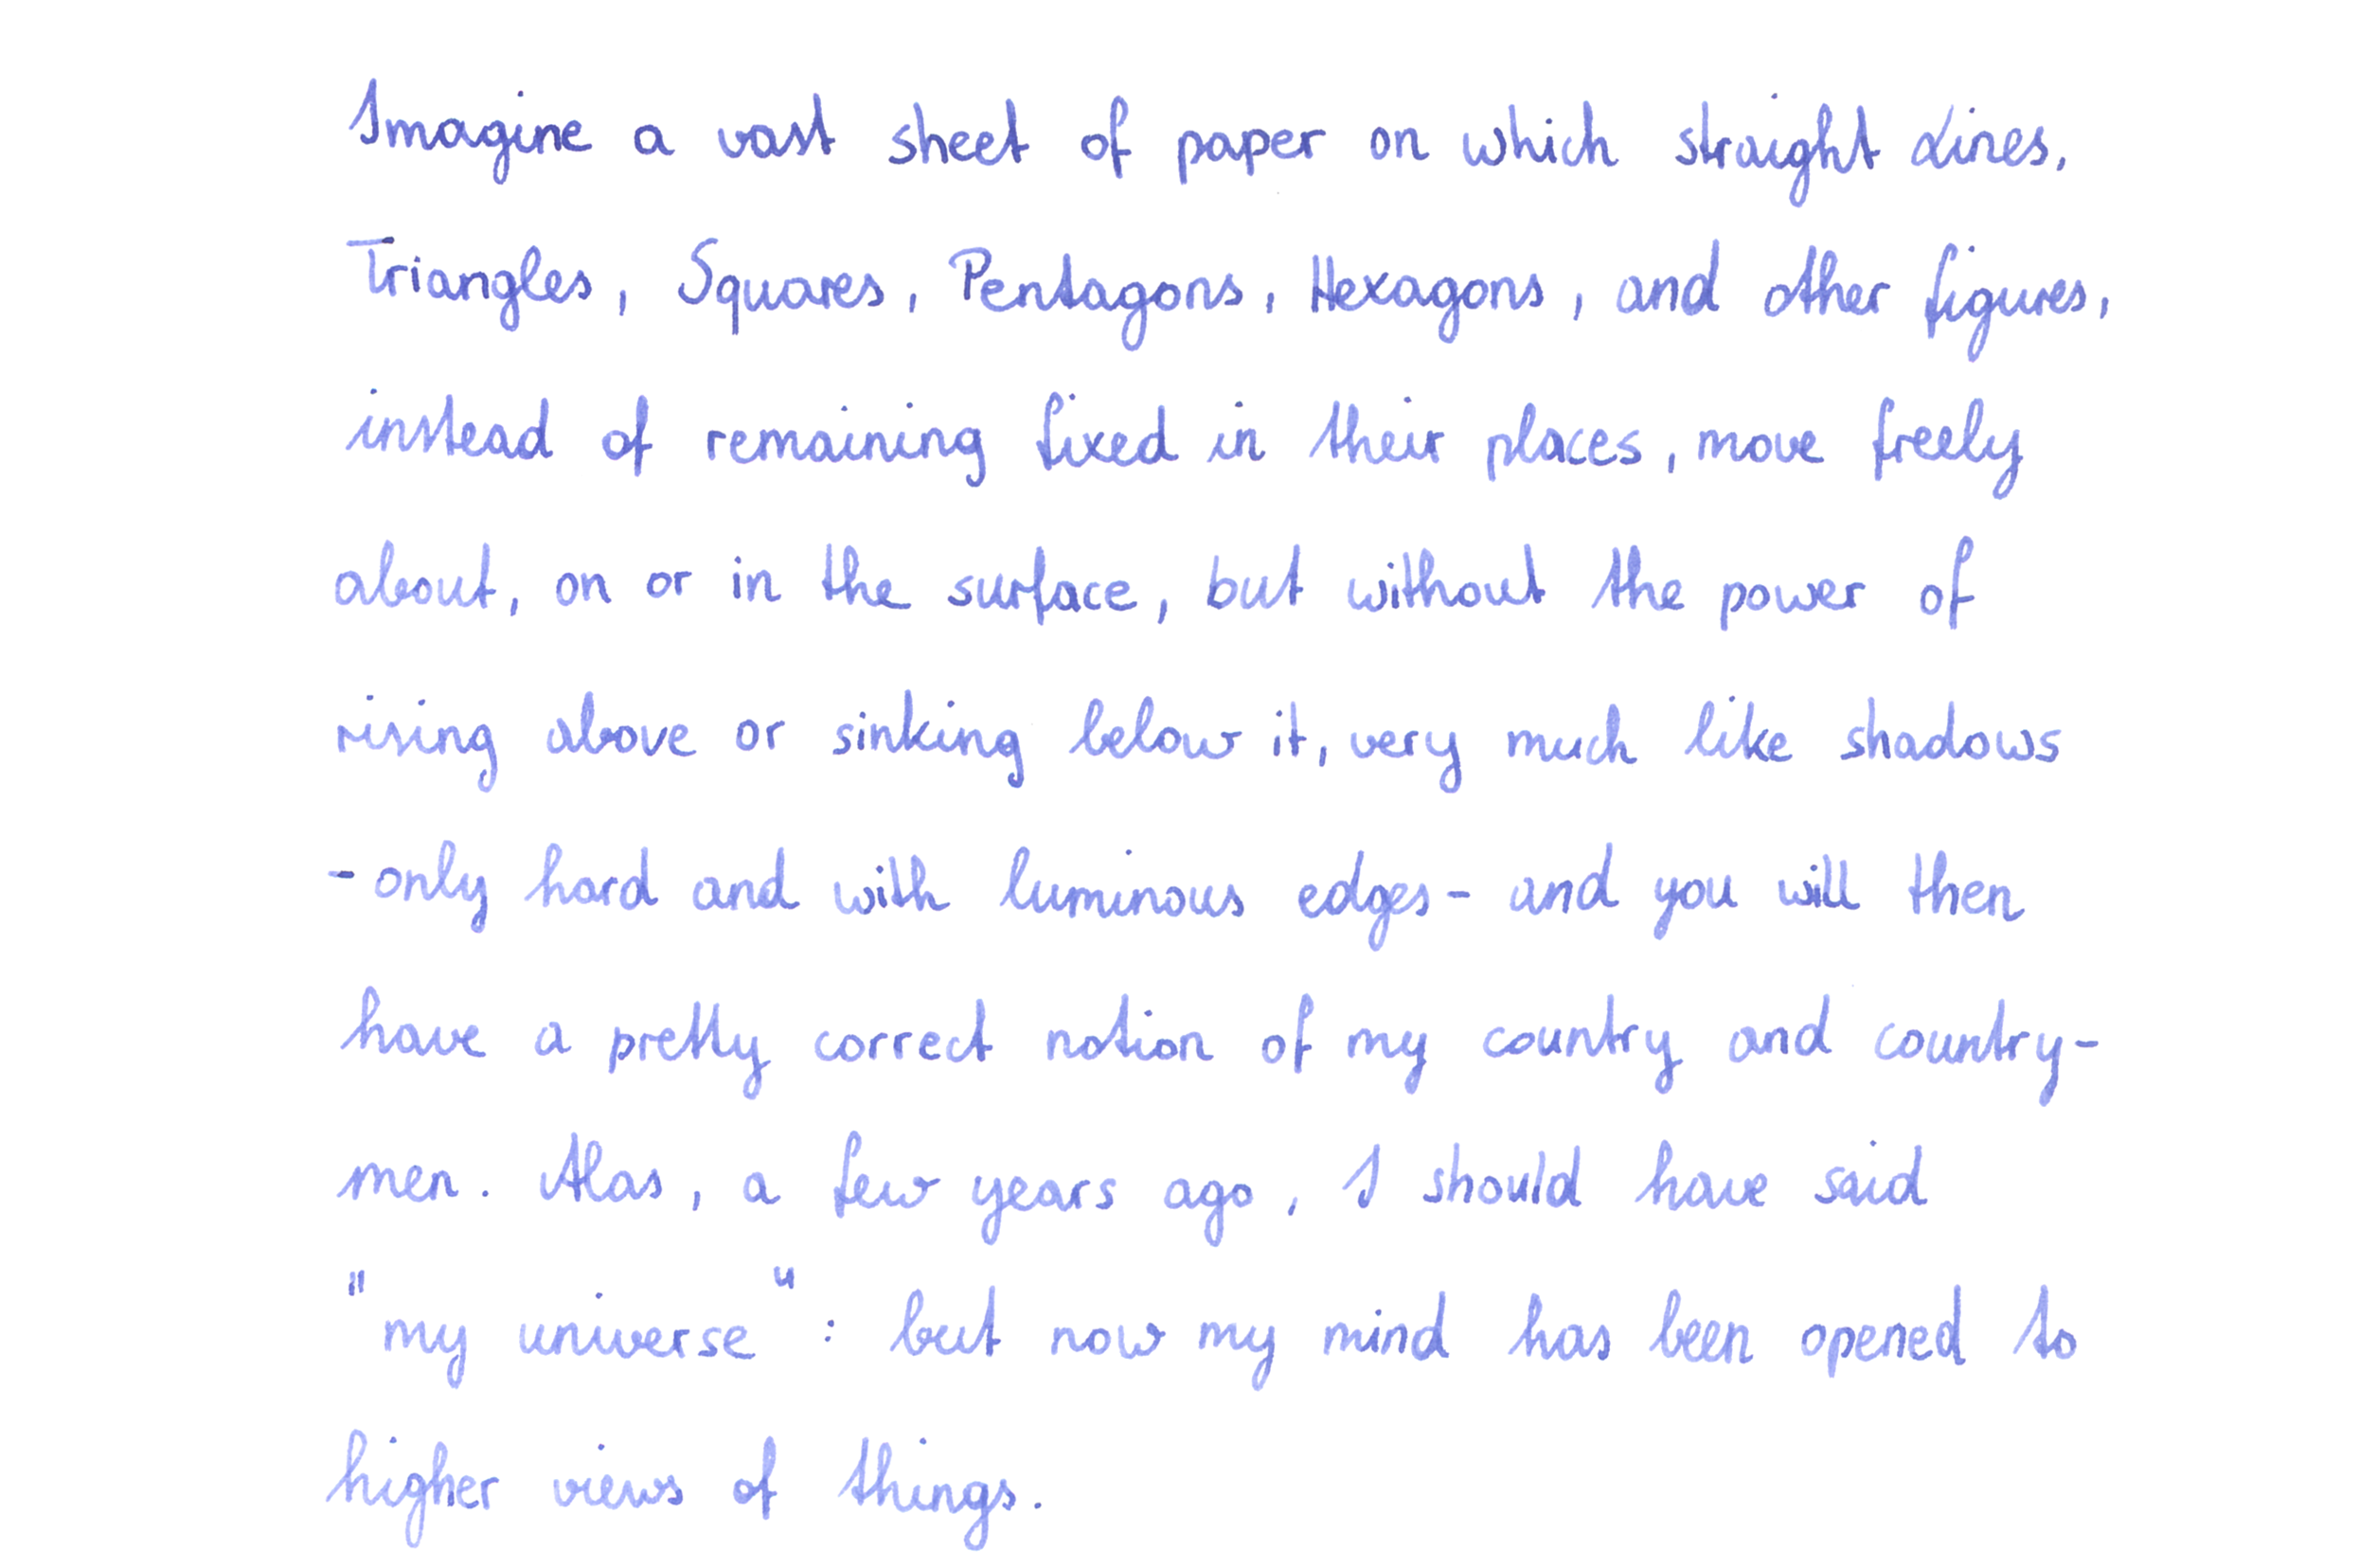 Imagine a vast sheet of paper on which straight Lines,
Triangles, Squares, Pentagons, Hexagons, and other figures,
instead of remaining fixed in their places, move freely
about, on or in the surface, but without the power of
rising above or sinking below it, very much like shadows
-only hard and with luminous edges- and you will then
have a pretty correct notion of my country and country-
men. Alas, a few years ago, I should have said
"my universe": but now my mind has been opened to
higher views of things.